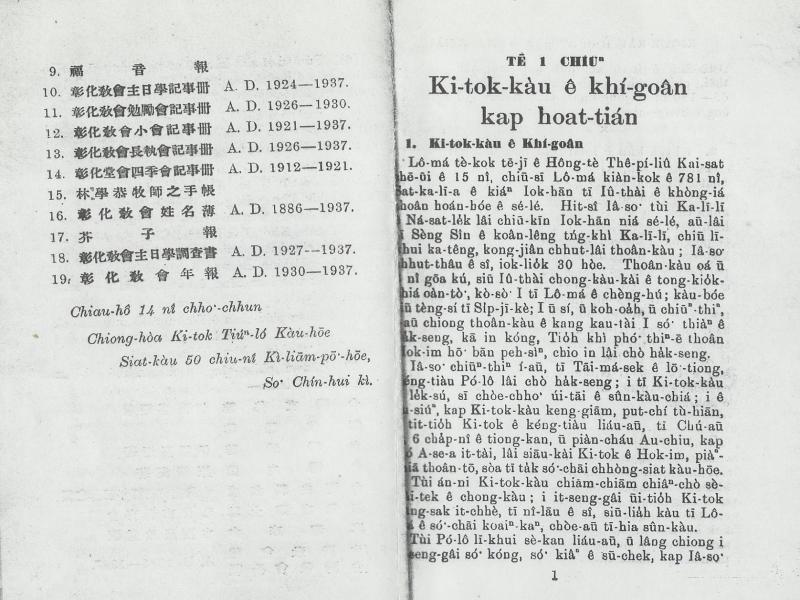 9. 福音報
10. 彰化教會主日學記事冊 A. D. 1924—1937.
11. 彰化教會勉勵會記事冊 A. D. 1926—1930.
12. 彰化教會小會記事冊 A. D. 1921—1937.
13. 彰化教會長執會記事冊 A. D. 1926—1937.
14. 彰化堂會四季會記事冊 A. D. 1912—1921.
15. 林學恭牧師之手帳
16. 彰化教會姓名薄 A. D. 1886—1937.
17. 芥子報
18. 彰化教會主日學調查書 A. D. 1927—1937.
19. 彰化教會年報 A. D. 1930—1937.
Chiau-hô 14 nî chho͘-chhun
Chiong-hòa Ki-tok Tiúⁿ-ló Kàu-hōe
Siat-kàu 50 chiu-nî Kì-liām-pō͘-hōe,
So͘ Chín-hui kì.
TĒ 1 CHIUⁿ
Ki-tok-kàu ê khí-goân
kap hoat-tián
1. Ki-tok-kàu ê Khí-goân
Lô-má tè-kok tē-jī ê Hông-tè Thê-pí-liû Kai-sat
ê 15 nî, chiū-sī Lô-má kiàn-kok ê 781 nî,
ê kiáⁿ Iok-hān tī Iû-thài ê khòng-iá
hoán-hóe ê sé-lé. Hit-sî Iâ-so͘ tùi Ka-lī-lī
Ná-sat-le̍k lâi chiū-kīn Iok-hān niá sé-lé, aū-lâi
Sèng Sîn ê koân-lêng tńg-khì Ka-lī-lī, chiū lī-
ka-têng, kong-jiân chhut-lâi thoân-kàu; Iâ-so͘
chhut-thâu ê sî, iok-lio̍k 30 hòe. Thoân-kàu oá ū
nî gōa kú, siū Iû-thài chong-kàu-kài ê tong-kio̍k-
oàn-tò͘, kò-sò͘ I tī Lô-má ê chèng-hú; kàu-bóe
tèng-sí tī Si̍p-jī-kè; I ū sí, ū koh-oa̍h, ū chiūⁿ-thiⁿ,
aū chiong thoân-kàu ê kang kau-tài I só͘ thiàⁿ ê
kā in kóng, Tio̍h khì phó͘-thiⁿ-ē thoân
hō͘ bān peh-sìⁿ, chio in lâi chò ha̍k-seng.
Iâ-so͘ chiūⁿ-thiⁿ í-aū, tī Tāi-má-sek ê lō͘-tiong,
Pó-lô lâi chò ha̍k-seng; i tī Ki-tok-kàu
sī chòe-chho͘ úi-tāi ê sûn-kàu-chiá; i ê
kap Ki-tok-kàu keng-giām, put-chí tù-hiān,
Ki-tok ê kéng-tiàu liáu-aū, tī Chú-aū
6 cha̍p-nî ê tiong-kan, ū piàn-cháu Au-chiu, kap
A-se-a it-tài, lâi siāu-kài Ki-tok ê Hok-im,
thoân-tō, sòa tī ta̍k só͘-chāi chhòng-siat kàu-hōe.
Tùi án-ni Ki-tok-kàu chiām-chiām chiâⁿ-chò sè-
ê chong-kàu; i it-seng-gâi ūi-tio̍h Ki-tok
it-chhè, tī nî-lāu ê sî, siū-lia̍h kàu tī Lô-
ê só͘-chāi koaiⁿ-kaⁿ, chòe-aū tī-hia sûn-kàu.
Tùi Pó-lô lī-khui sè-kan liáu-aū, ū lâng chiong i
só͘ kóng, só͘ kiâⁿ ê sū-chek, kap Iâ-so͘
1